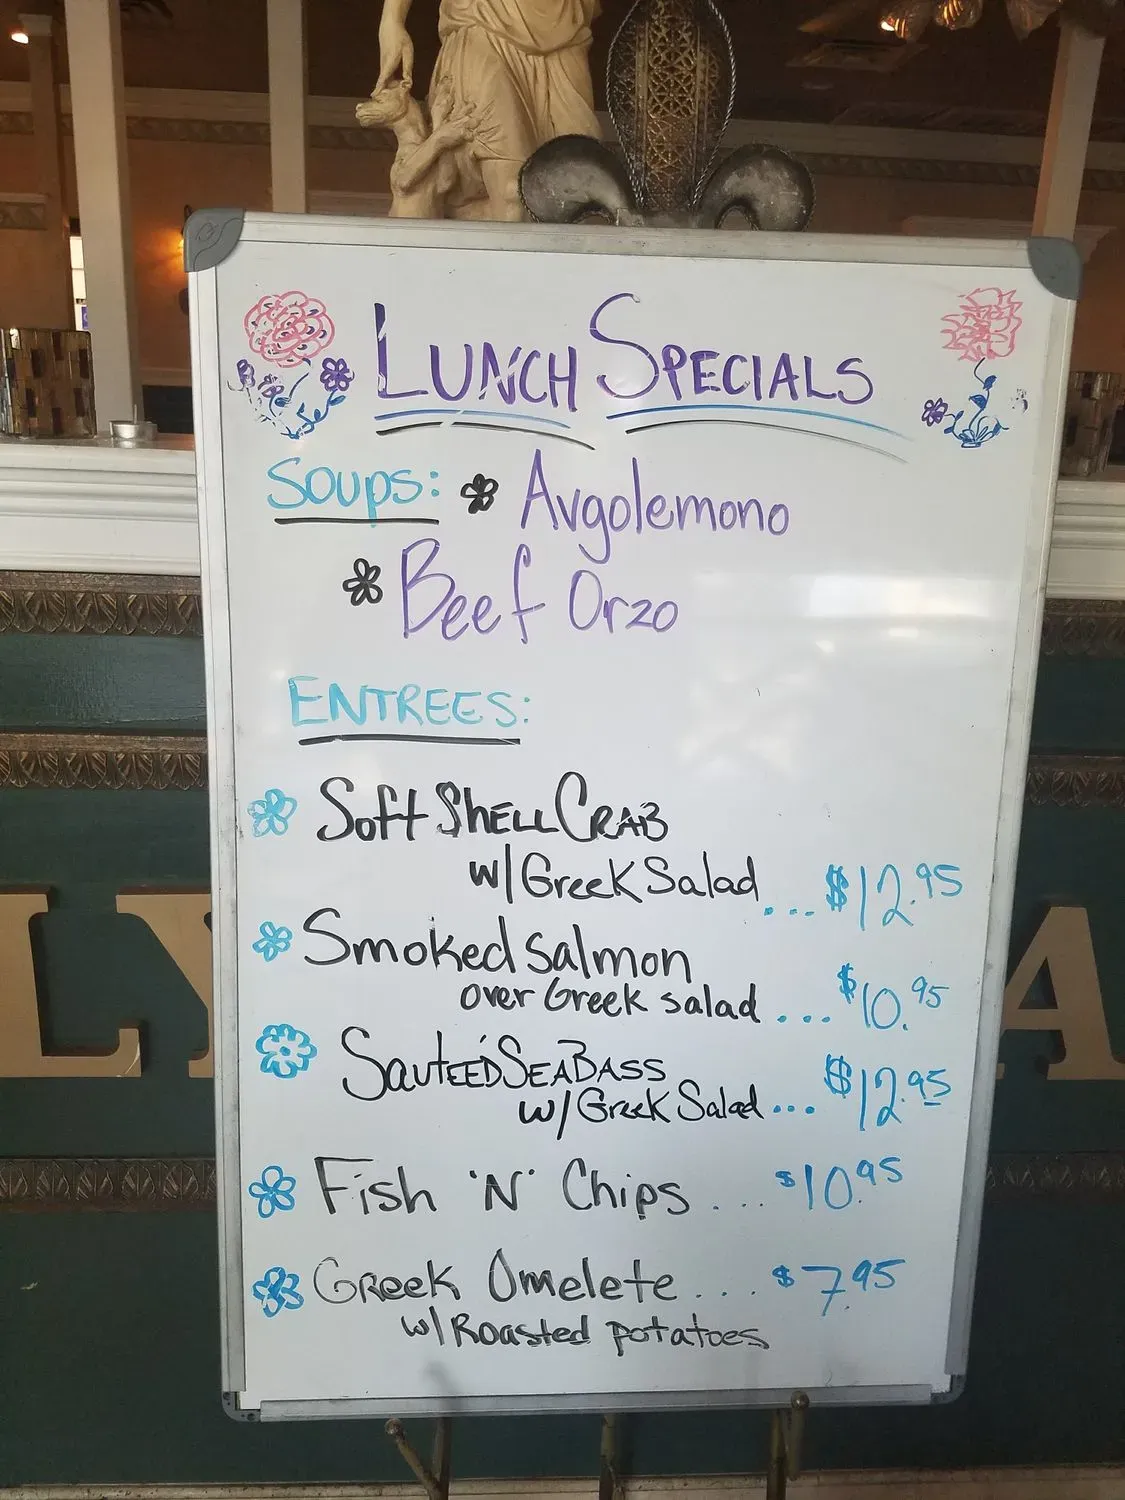 LUNCH SPECIALS
SOUPS: Avgolemono
Beef Orzo
ENTREES:
Soft Shell Crab
w/Greek Salad ... $12.95
Smoked Salmon
over Greek salad ... $10.95
Sauteéd SeaBass
w/Greek Salad ... $12.95
Fish 'N' Chips .... $10.95
Greek Omelete .... $7.95
w/Roasted potatoes
LY
A